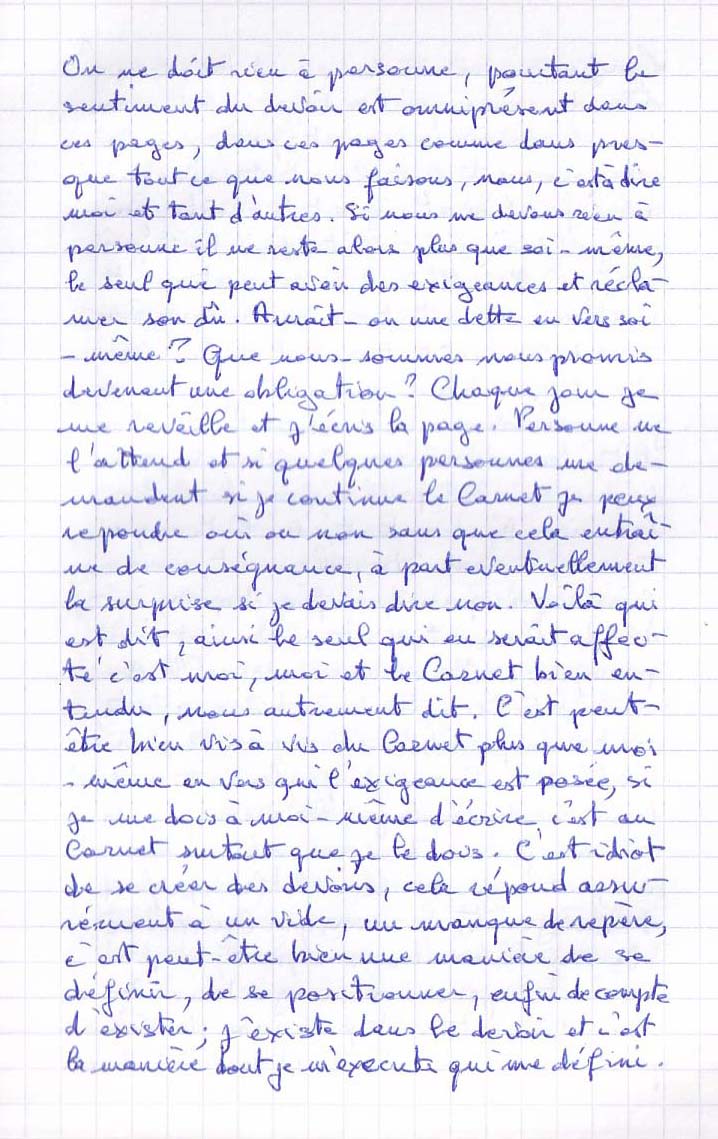 On ne doit rien à personne, pourtant le
sentiment du devoir est omniprésent dans
ces pages, dans ces pages comme dans pres-
que tout ce que nous faisons, nous, c'està dire
moi et tant d'autres. Si nous ne devons rien à
personne il ne reste alors plus que soi-même,
le seul qui peut avoir des exigeances et récla-
mer son dû. Aurait-on une dette en vers soi
-même? Que nous-sommes nous promis
devenant une obligation? Chaque jour je
me reveille et j'écris la page. Personne ne
l'attend et si quelques personnes me de-
mandent si je continue le Carnet je peux
repondre oui ou non sans que cela entraî-
ne de conséquance, à part eventuellement
la surprise si je devais dire non. Voilà qui
est dit, ainsi le seul qui en serait affec-
té c'est moi, moi et le Carnet bien en-
tendu, nous autrement dit. C'est peut-
être bien vis à vis du Carnet plus que moi
-même en vers qui l'exigeance est posée, si
je me dois à moi-même d'écrire, c'est au
Carnet surtout que je le dois. C'est idiot
de se créer des devoirs, cela répond assu-
rément à un vide, un manque de repère,
c'est peut-être bien une manière de se
définir, de se positionner, enfin de compte
d'exister; j'existe dans le devoir et c'est
la manière dont je m'execute qui me défini.